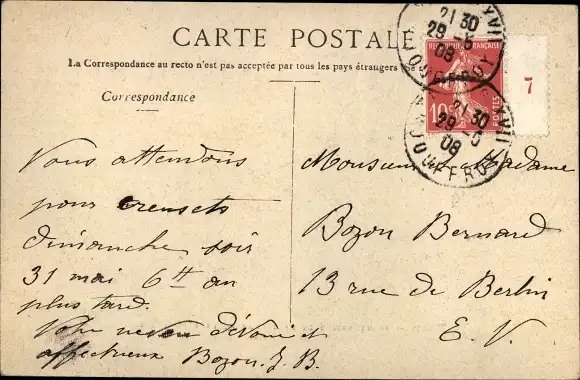 CARTE POSTALE
La Correspondance au recto n'est pas acceptée par tous les pays étrangers
Correspondance
Vous attendons
pour
dimanche soir
31 mai 6H au
plus tard.
Votre neveu dévoué et
affectueux Bozon. J. B.
RÉPUBLIQUE FRANÇAISE
10c
POSTES
7
21 30
29 - 5
08
JOUFFROY
21 30
29 - 5
08
R. JOUFFROY
XVII
Monsieur et Madame
Bozon Bernard
13 rue de Berlin
E. V.